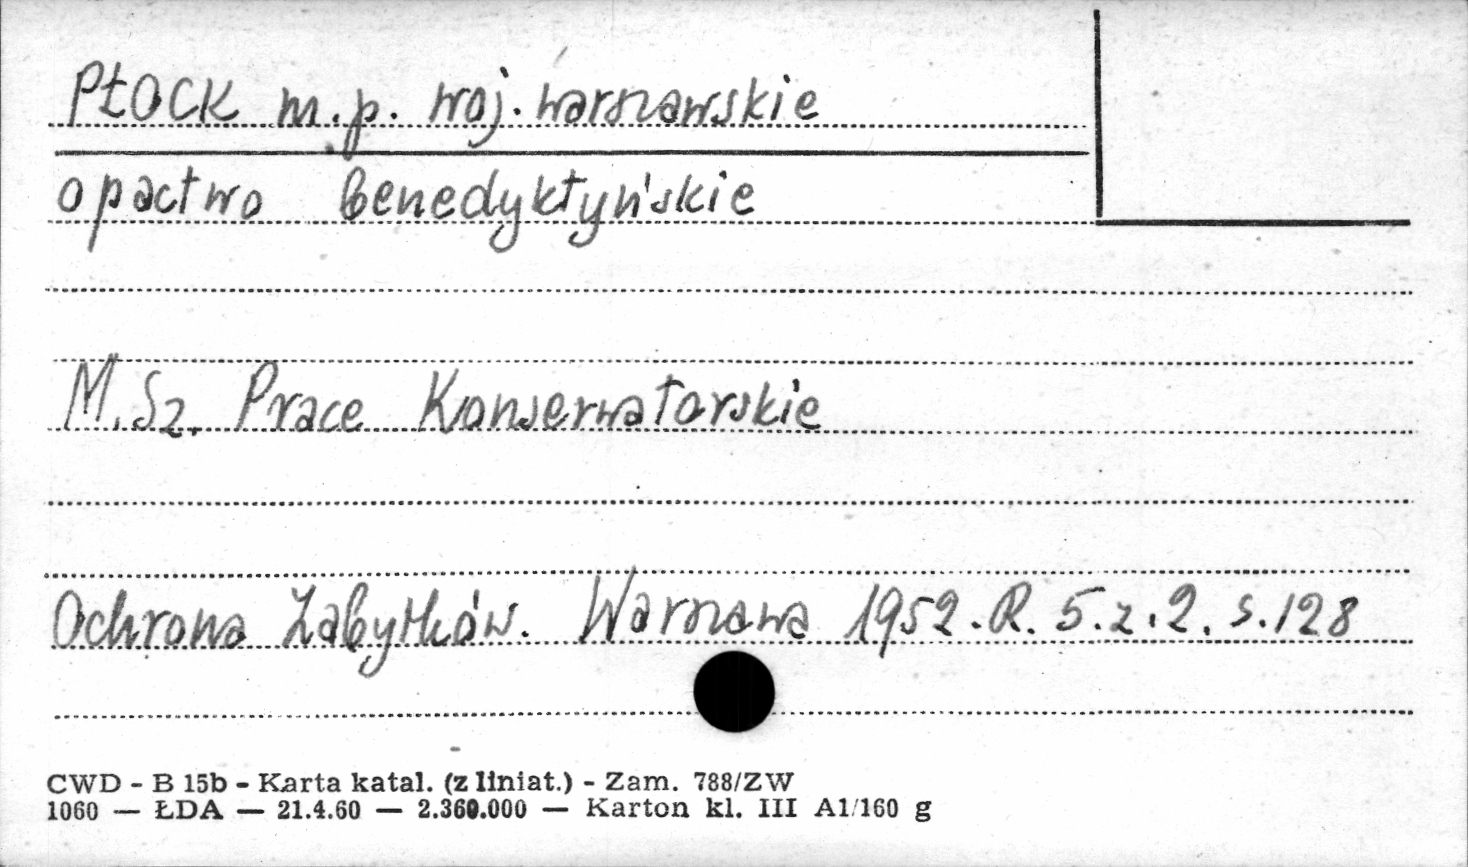 PŁOCK m.p. woj. warszawskie
opactwo benedyktyńskie
M.Sz. Prace Konserwatorskie
Ochrona Zabytków. Warszawa 1952. R. 5. z. 2. s. 128
CWD - B 15b - Karta katal. (z liniat.) - Zam. 788/ZW
1060 — ŁDA — 21.4.60 — 2.360.000 — Karton kl. III A1/160 g